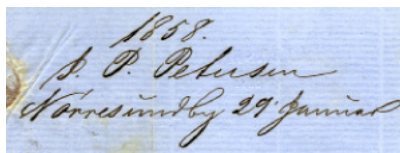 1858.
J. P. Petersen
Nørresundby 29' Januar